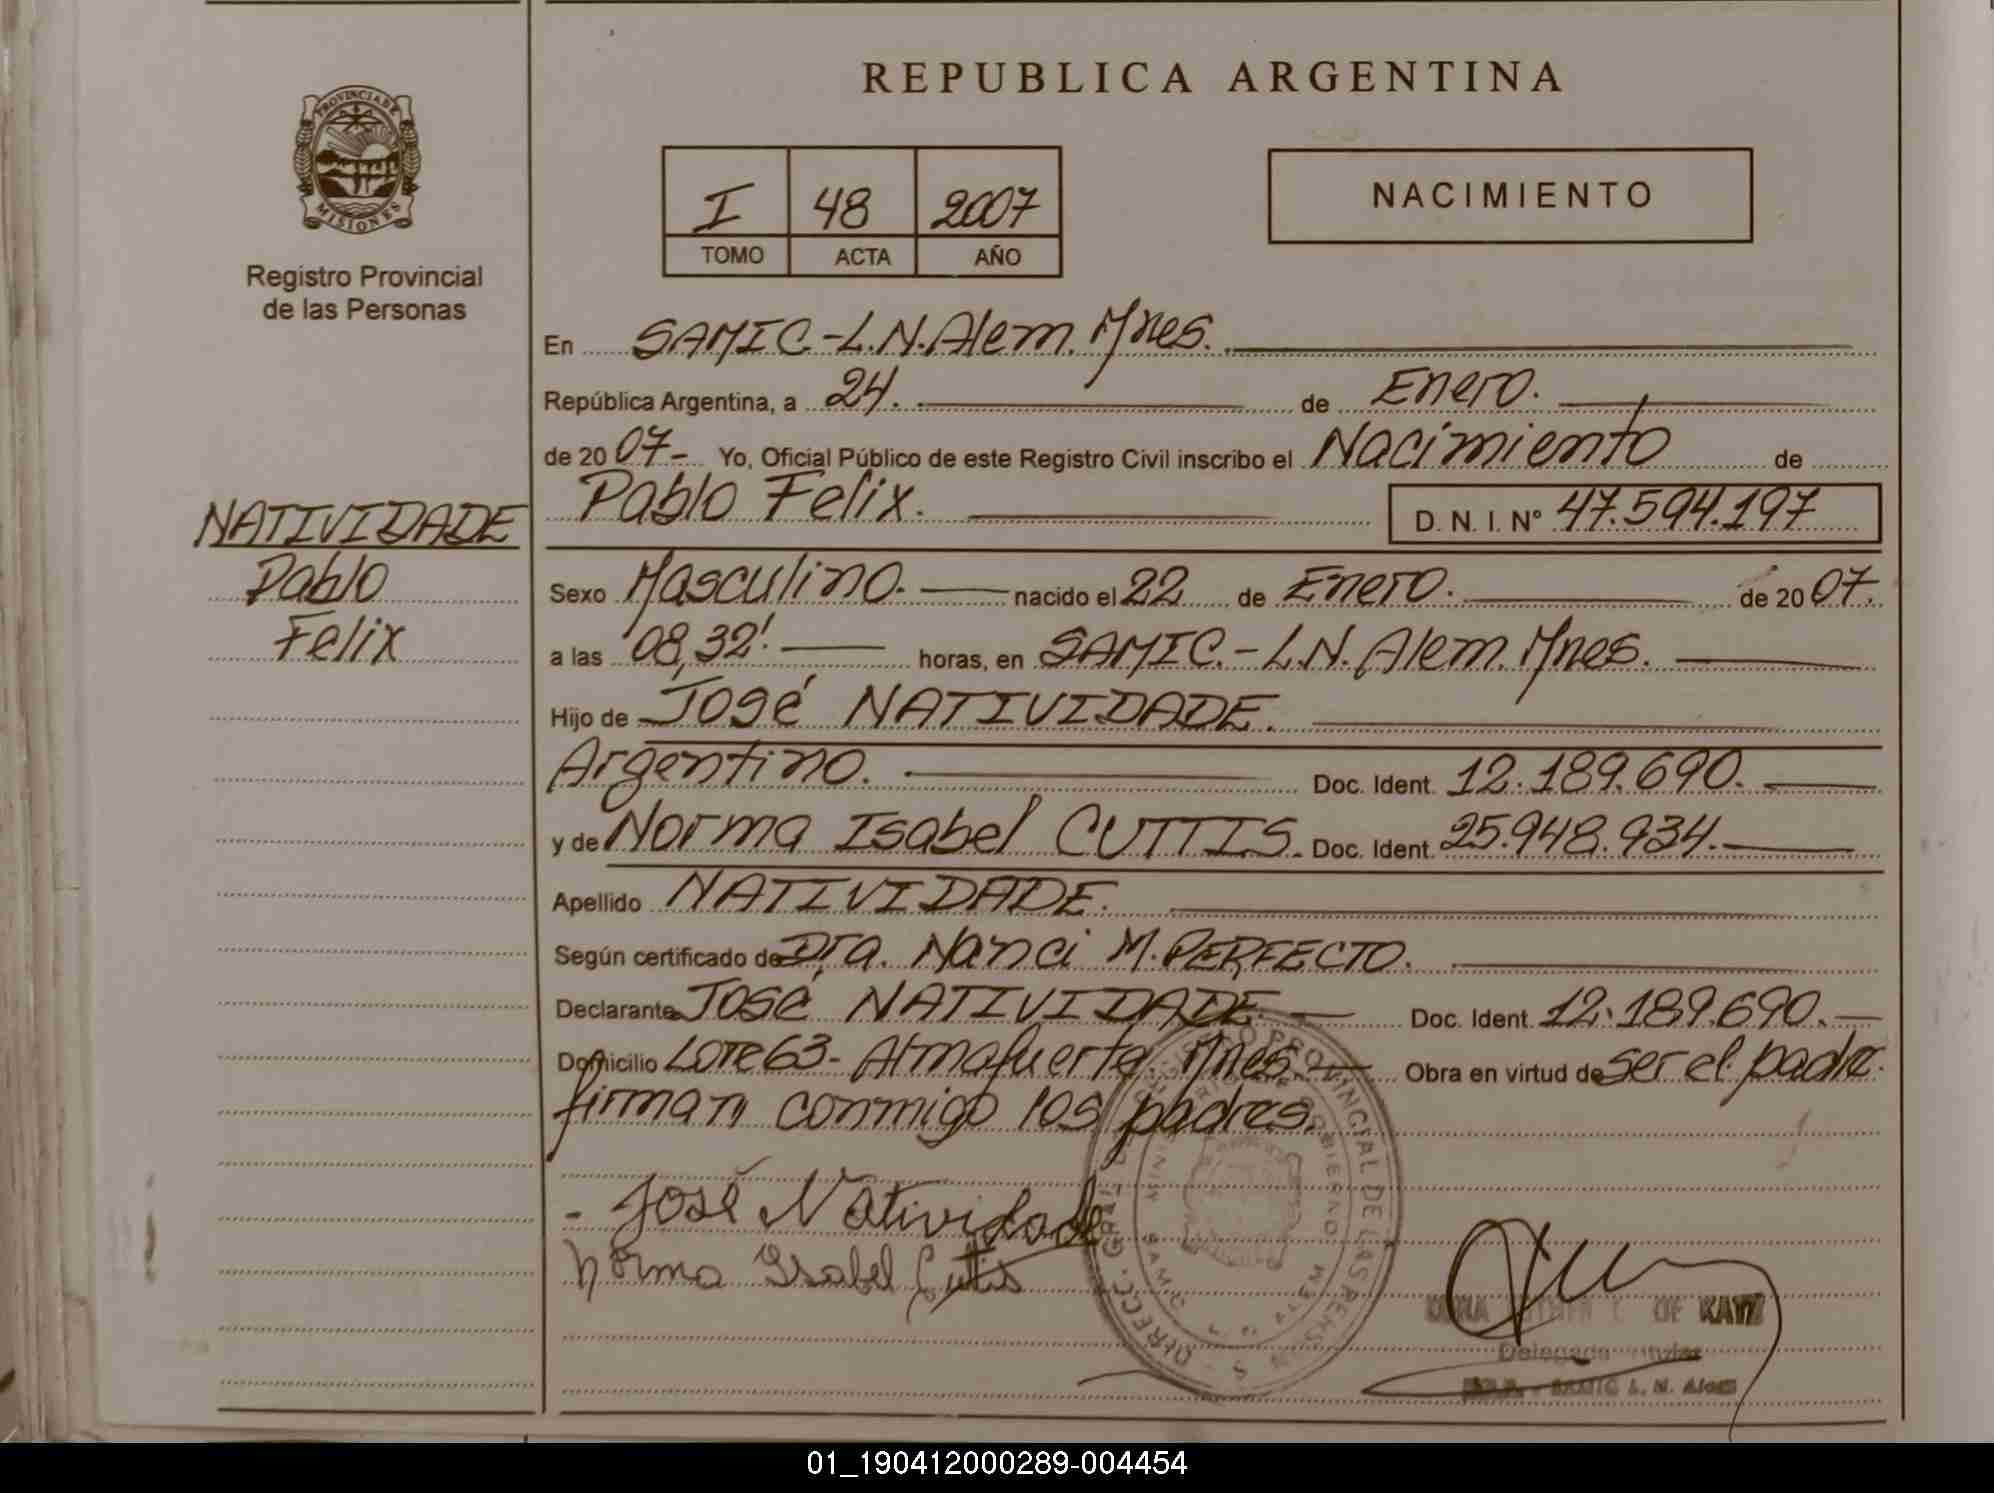 REPUBLICA ARGENTINA
PROVINCIA DE
MISIONES
Registro Provincial
de las Personas
I 48 2007
TOMO ACTA AÑO
NACIMIENTO
En SAMIC-L.N.Alem. Mnes.
República Argentina, a 24. de Enero.
de 2007- Yo, Oficial Público de este Registro Civil inscribo el Nacimiento de
Pablo Felix. D. N. I. Nº 47.594.197
NATIVIDADE
Pablo
Felix
Sexo Masculino. nacido el 22 de Enero. de 2007.
a las 08,32'. horas, en SAMIC.-L.N. Alem. Mnes.
Hijo de José NATIVIDADE.
Argentino. Doc. Ident. 12.189.690.
y de Norma Isabel CUTTIS. Doc. Ident. 25.948.934.
Apellido NATIVIDADE.
Según certificado de Dra. Nanci M. PERFECTO.
Declarante José NATIVIDADE Doc. Ident. 12.189.690.
Domicilio Lote 63- Almafuerte. Mnes. Obra en virtud de ser el padre.
firman conmigo los padres.
- José Natividade
Norma Isabel Cuttis
REGISTRO PROVINCIAL DE LAS PERSONAS
DE KATZ
Delegada Titular
SAMIC L. N. Alem
01_190412000289-004454